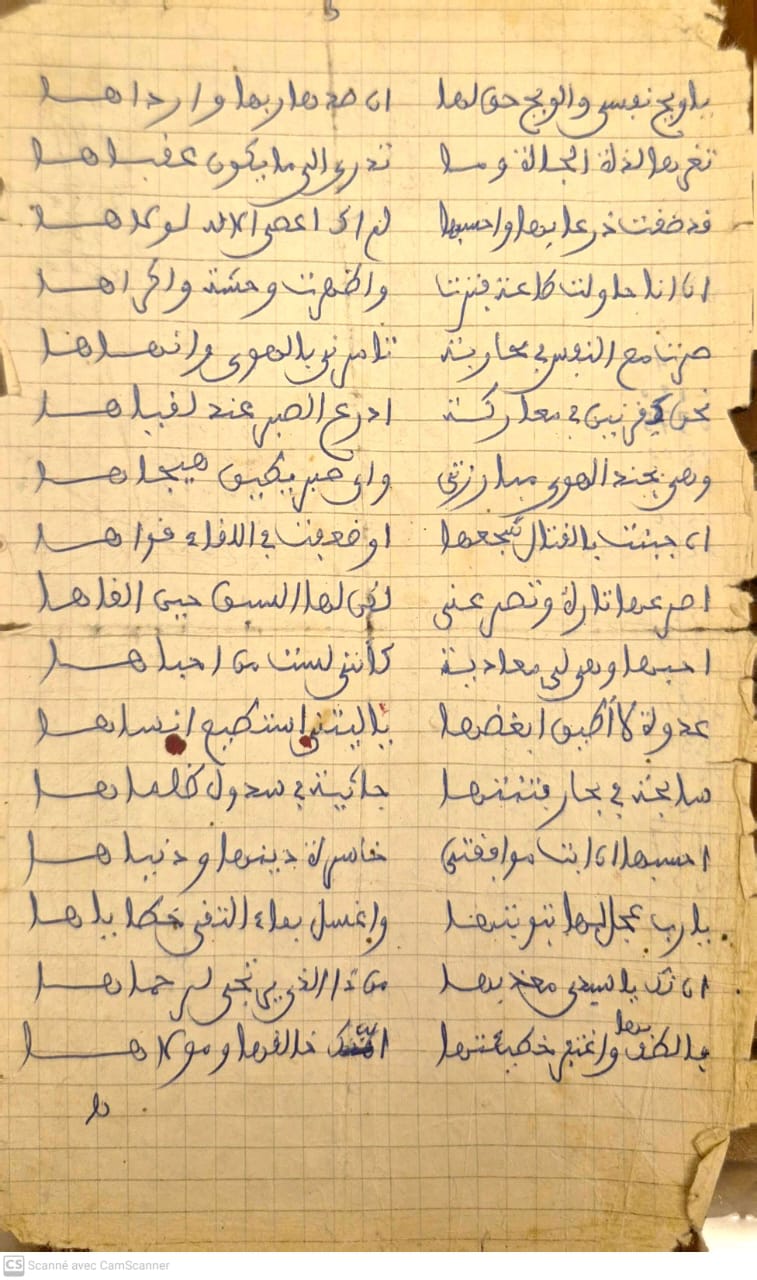 ياويح نفسي والويح حق لها ان صدها ربها وارداها
تغرها لذة الحياة وما تدري الى ما يكون عقباها
قد ضفت ذرعا بها واحسبها لم اك اعصى الاله لولاها
ان انا حاولت طاعة فترت واظهرت وحشة واكراها
صرنا مع النفس في محاربة تامرني بالهوى وانهاها
نحن كقرنين في معاركة ادرع الصبر عند لقياها
وهي بجند الهوى مبارزتي واي صبر يطيق هيجاها
ان جبنت بالقتال شجعها اوضعفت في اللقاء قواها
اصرعها تارة وتصرعني لكن لها السبق حين القاها
احبها وهي لي معادية كأنني لست من احباها
عدوة لا أطيق ابغضها ياليتني استطيع انساها
سابحة في بحار فتنتها جاثية في سدول ظلماها
احسبها ان ابت موافقتي خاسرة دينها ودنياها
يارب عجل لها بتوبتها واغسل بماء التقى خطاياها
ان تك ياسيدي معذبها من ذا الذي يرتجى لرحماها
فالطف بها واغفر خطيئتها انت خالقها ومولاها